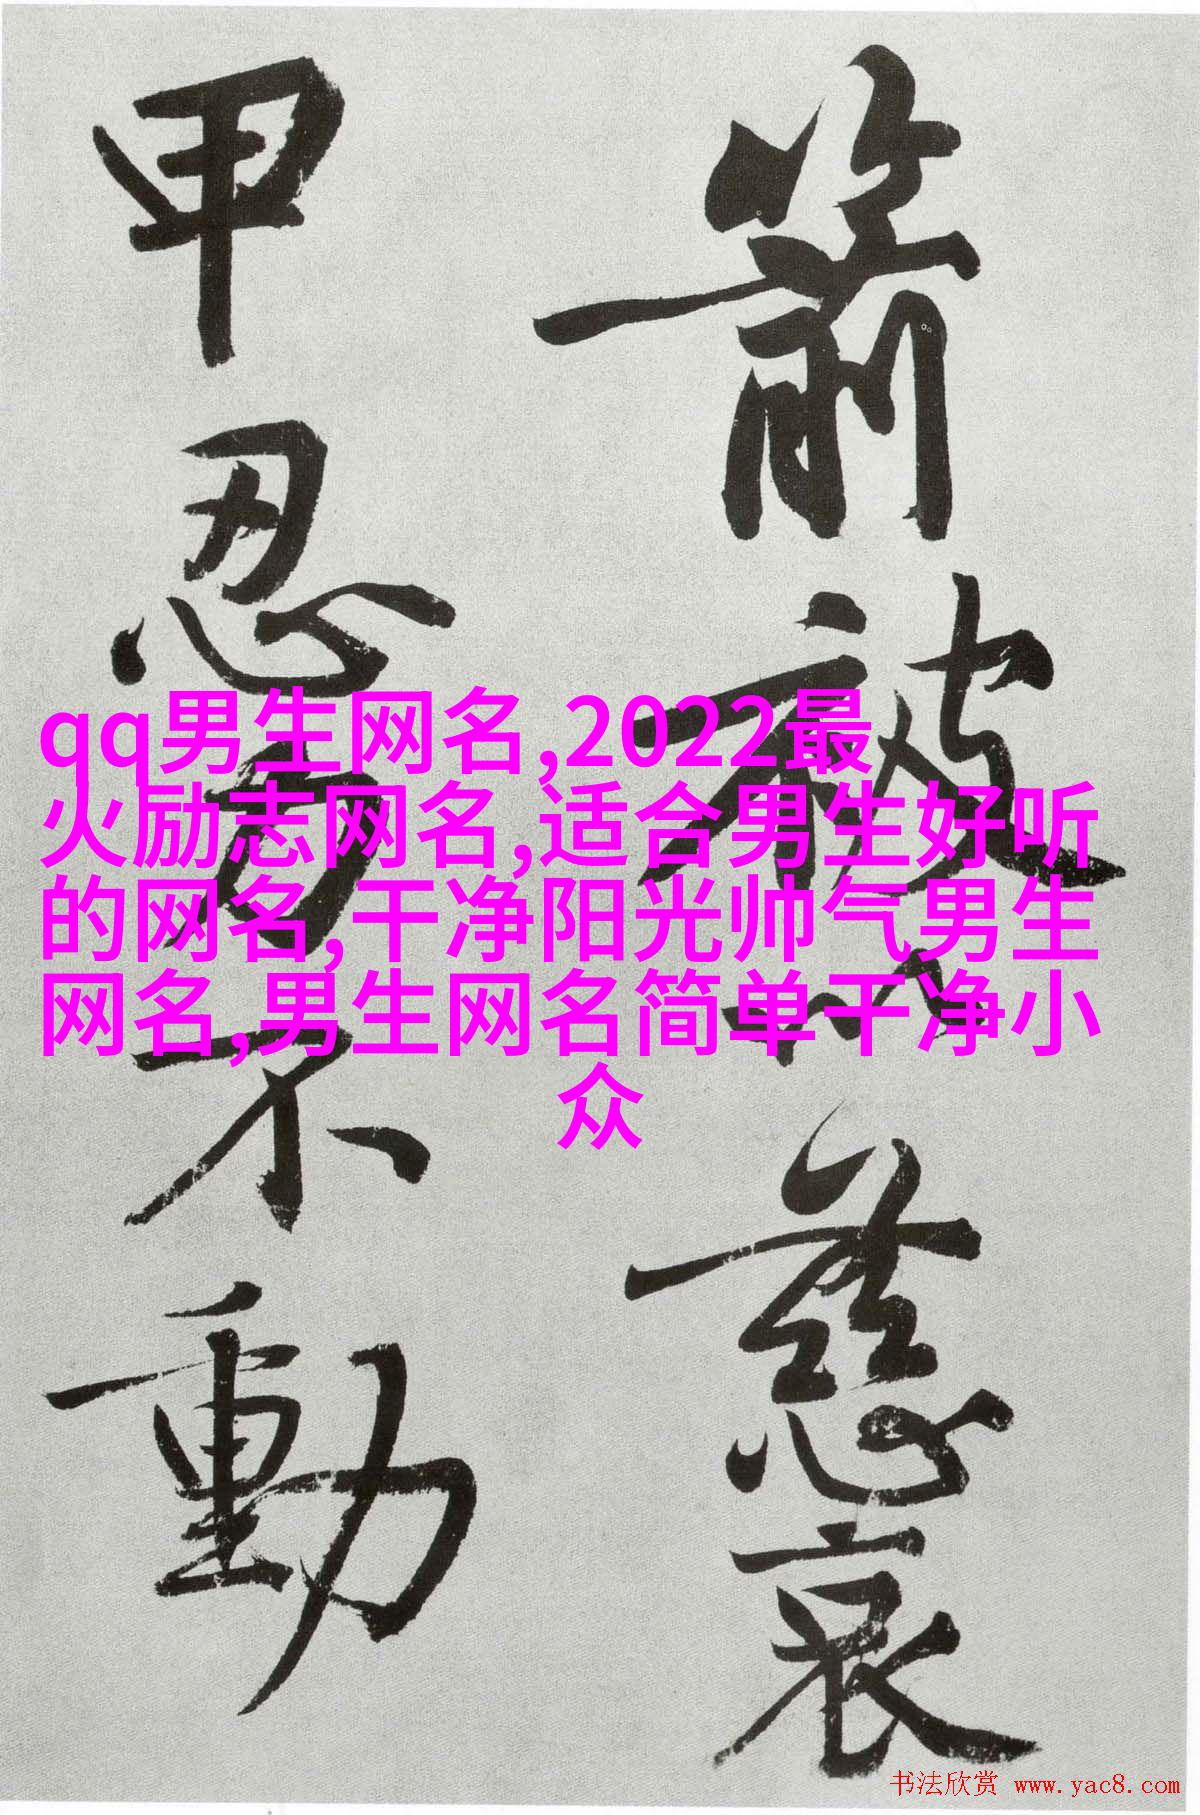 箭被以慈哀
甲忍不動
qq男生网名,2022最
火励志网名,适合男生好听
的网名,干净阳光帅气男生
网名,男生网名简单干净小
众
书法欣赏 www.yac8.com